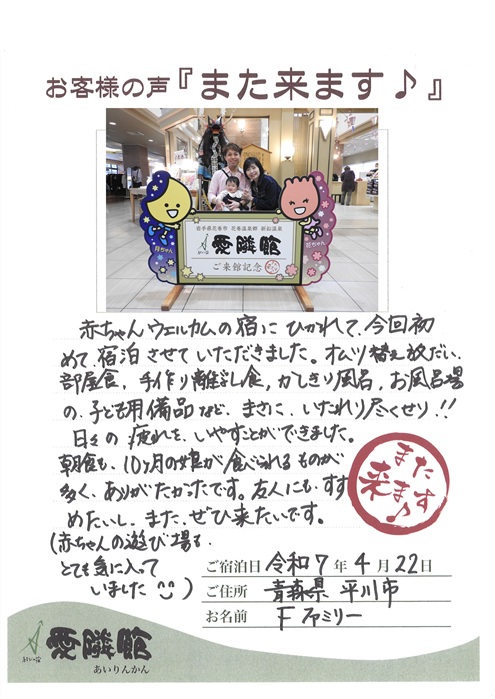 お客様の声『また来ます♪』
岩手県花巻市 花巻温泉郷 新鉛温泉
愛隣館
ご来館記念
赤ちゃんウェルカムの宿にひかれて、今回初
めて宿泊させていただきました。オムツ替え放だい、
部屋食、手作り離乳食、かしきり風呂、お風呂場
の、子ども用備品など、まさに、いたれり尽くせり!!
日々の疲れを、いやすことができました。
朝食も、10ヶ月の娘が食べられるものが
多く、ありがたかったです。友人にも、すす
めたいし、また、ぜひ来たいです。
(赤ちゃんの遊び場も、
とても気に入って
いました)
また
来ます♪
ご宿泊日 令和7年4月22日
ご住所 青森県 平川市
お名前 Fファミリー
愛隣館
あいりんかん